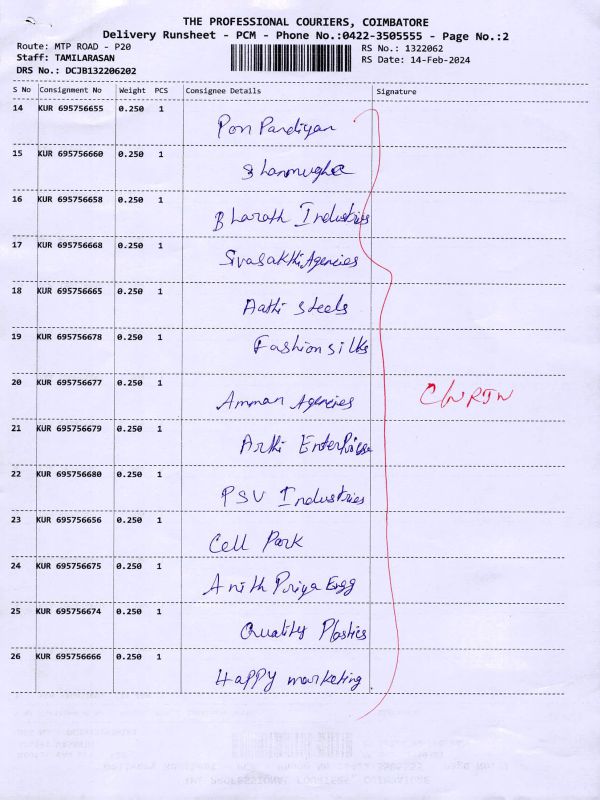 THE PROFESSIONAL COURIERS, COIMBATORE
Delivery Runsheet - PCM - Phone No.:0422-3505555 - Page No.:2
Route: MTP ROAD - P20 RS No.: 1322062
Staff: TAMILARASAN RS Date: 14-Feb-2024
DRS No.: DCJB132206202
S No Consignment No Weight PCS Consignee Details Signature
14 KUR 695756655 0.250 1 Pon Pandiyan
15 KUR 695756660 0.250 1 Shanmugha
16 KUR 695756658 0.250 1 Bharath Industries
17 KUR 695756668 0.250 1 Sivasakthi Agencies
18 KUR 695756665 0.250 1 Aathi steels
19 KUR 695756678 0.250 1 Fashion silks
20 KUR 695756677 0.250 1 Amman Agencies
21 KUR 695756679 0.250 1 Arthi Enterprise
22 KUR 695756680 0.250 1 PSV Industries
23 KUR 695756656 0.250 1 Cell Park
24 KUR 695756675 0.250 1 Anith Priya Engg
25 KUR 695756674 0.250 1 Quality Plastics
26 KUR 695756666 0.250 1 Happy marketing